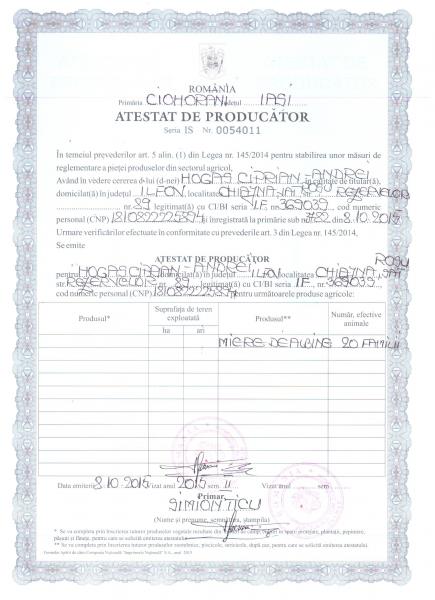 ROMÂNIA
Primăria CIOHORANI județul IAȘI
ATESTAT DE PRODUCĂTOR
Seria IS Nr. 0054011
În temeiul prevederilor art. 5 alin. (1) din Legea nr. 145/2014 pentru stabilirea unor măsuri de
reglementare a pieței produselor din sectorul agricol,
Având în vedere cererea d-lui (d-nei) HOGAȘ CIPRIAN-ANDREI în calitate de titular(ă),
domiciliat(ă) în județul ILFOV, localitatea CHIAJNA, SAT ROȘU REZERVELOR
nr. 89 legitimat(ă) cu CI/BI seria I.F. nr. 369039, cod numeric
personal (CNP) și înregistrată la primărie sub nr. 3722 din 8.10.2015
Urmare verificărilor efectuate în conformitate cu prevederile art. 3 din Legea nr. 145/2014,
Se emite
ATESTATUL DE PRODUCĂTOR
pentru HOGAȘ CIPRIAN-ANDREI, domiciliat(ă) în județul ILFOV localitatea CHIAJNA, SAT ROȘU
str. REZERVELOR nr. 89 legitimat(ă) cu CI/BI seria I.F. nr. 369039
cod numeric personal (CNP) pentru următoarele produse agricole:
Produsul* Suprafața de teren exploatată Produsul** Număr, efective animale
ha ari
MIERE DE ALBINE 20 FAMILII
Data emiterii 8.10.2015 Vizat anul 2015 sem. II Vizat anul sem.
Primar,
SIMION TICU
(Nume și prenume, semnătura, ștampila)
*. Se va completa prin înscrierea tuturor produselor vegetale rezultate din cultura de câmp, culturi în spații protejate, plantații, pepiniere,
pășuni și fânețe, pentru care se solicită emiterea atestatului.
**. Se va completa prin înscrierea tuturor produselor zootehnice, piscicole, sericicole, după caz, pentru care se solicită emiterea atestatului.